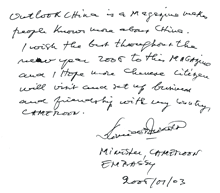 Outlook China is a Magazine makes
people known more about China.
I wish the best throughout the
new year 2005 to this MAGAZINE
and I Hope more Chinese citizen
will visit and set up business
and friendship with my country,
CAMEROON.
Minister CAMEROON
EMBASSY
2005/01/03